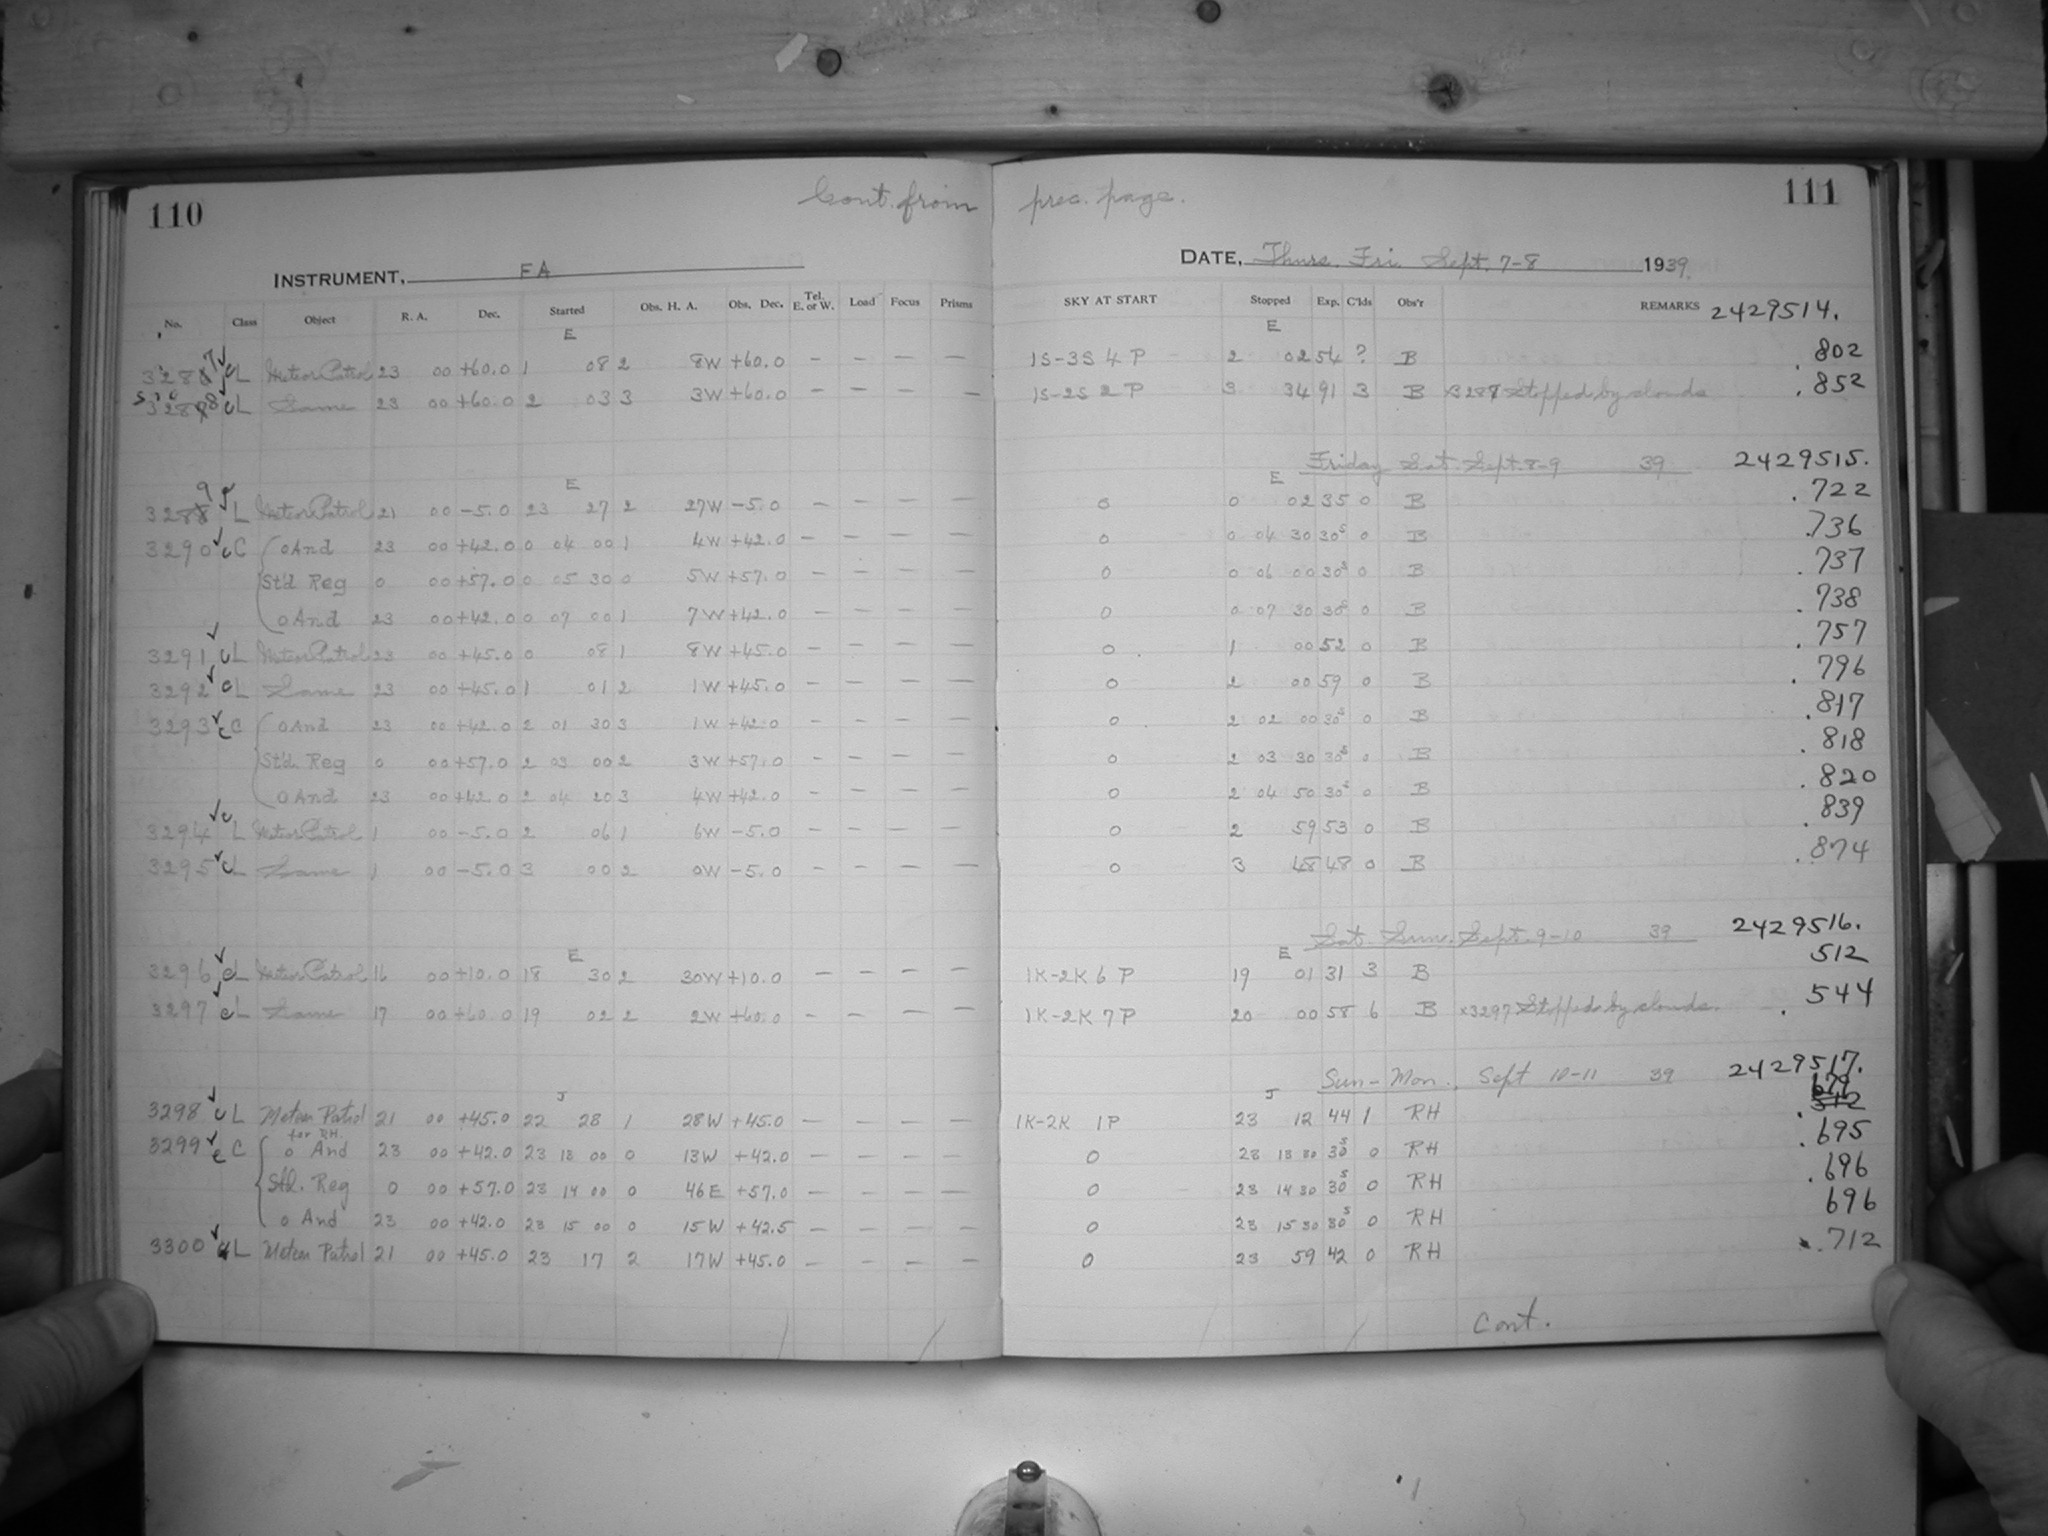 110 Cont. from prec. page. 111
INSTRUMENT, FA DATE, Thurs. Fri Sept. 7-8 1939.
No. Class Object R. A. Dec. Started Obs. H. A. Obs. Dec. Tel. E. or W. Load Focus Prisms SKY AT START Stopped Exp. C'lds Obs'r REMARKS 2429514.
E E
3287 L Meteor Patrol 23 00 +60.0 1 08 2 8W +60.0 - - - - 1S-3S 4 P 2 02 54 ? B .802
3288 L Same 23 00 +60.0 2 03 3 3W +60.0 - 1S-2S 2 P 3 34 91 3 B x3287 Stopped by clouds .852
Friday Sat. Sept. 8-9 39 2429515.
E E
3289 L Meteor Patrol 21 00 -5.0 23 27 2 27W -5.0 - - - - 0 0 02 35 0 B .722
3290 C o And 23 00 +42.0 0 04 00 1 4W +42.0 - - - - 0 0 04 30 30s 0 B .736
Std Reg 0 00 +57.0 0 05 30 0 5W +57.0 - - - - 0 0 06 00 30s 0 B .737
o And 23 00 +42.0 0 07 00 1 7W +42.0 - - - - 0 0 07 30 30s 0 B .738
3291 L Meteor Patrol 23 00 +45.0 0 08 1 8W +45.0 - - - - 0 1 00 52 0 B .757
3292 L Same 23 00 +45.0 1 01 2 1W +45.0 - - - - 0 2 00 59 0 B .796
3293 C o And 23 00 +42.0 2 01 30 3 1W +42.0 - - - - 0 2 02 00 30s 0 B .817
Std. Reg 0 00 +57.0 2 03 00 2 3W +57.0 - - - - 0 2 03 30 30s 0 B .818
o And 23 00 +42.0 2 04 20 3 4W +42.0 - - - - 0 2 04 50 30s 0 B .820
3294 L Meteor Patrol 1 00 -5.0 2 06 1 6W -5.0 - - - - 0 2 59 53 0 B .839
3295 L Same 1 00 -5.0 3 00 2 0W -5.0 - - - - 0 3 48 48 0 B .874
Sat. Sun. Sept. 9-10 39 2429516.
E E
3296 L Meteor Patrol 16 00 +10.0 18 30 2 30W +10.0 - - - - 1K-2K 6 P 19 01 31 3 B 512
3297 L Same 17 00 +60.0 19 02 2 2W +60.0 - - - - 1K-2K 7 P 20 00 58 6 B x3297 Stopped by clouds. .544
Sun - Mon. Sept 10-11 39 2429517.
J J
3298 L Meteor Patrol 21 00 +45.0 22 28 1 28W +45.0 - - - - 1K-2K 1P 23 12 44 1 RH .679
for RH.
3299 C o And 23 00 +42.0 23 13 00 0 13W +42.0 - - - - 0 23 13 30 30s 0 RH .695
Std. Reg 0 00 +57.0 23 14 00 0 46E +57.0 - - - - 0 23 14 30 30s 0 RH .696
o And 23 00 +42.0 23 15 00 0 15W +42.5 - - - - 0 23 15 30 30s 0 RH 696
3300 L Meteor Patrol 21 00 +45.0 23 17 2 17W +45.0 - - - - 0 23 59 42 0 RH .712
Cont.